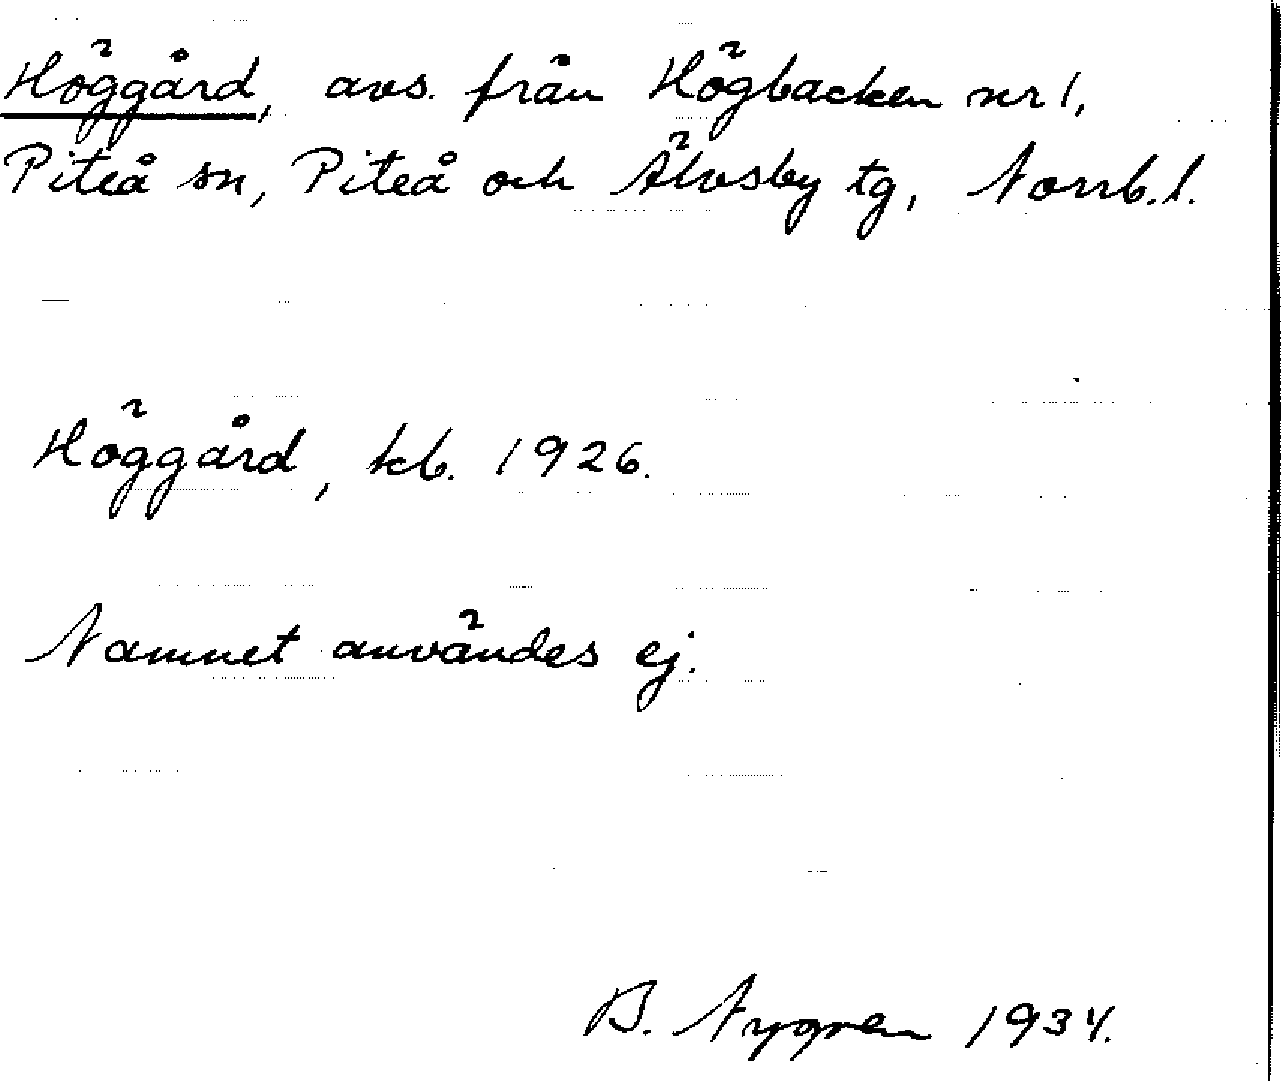 Höggård, avs. från Högbacken nr 1,
Piteå sn, Piteå och Älvsby tg, Norrb. l.
Höggård, kb. 1926.
Namnet användes ej.
B. Nygren 1934.